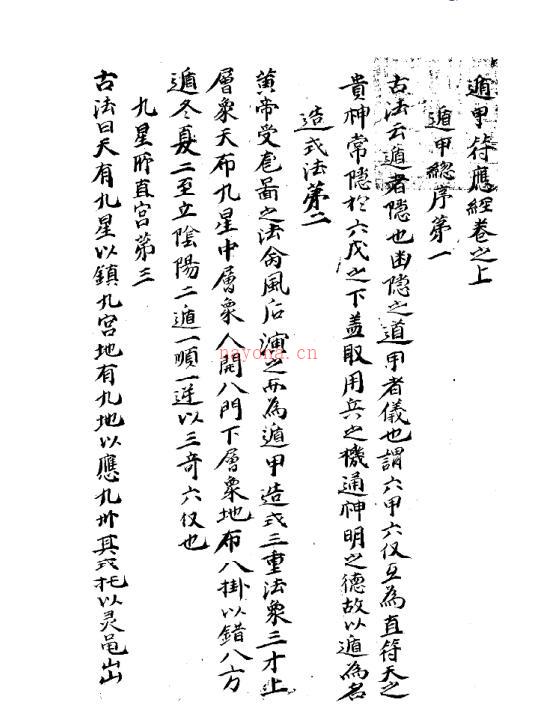 遁甲符應經卷之上
遁甲總序第一
古法云遁者隐也幽隐之道甲者儀也謂六甲六仪互為直符天之
貴神常隐於六戊之下盖取用兵之機通神明之德故以遁為名
造式法第二
黄帝受啚之法命風后演之而為遁甲造式三重法象三才上
層象天布九星中層象人開八門下層象地布八掛以錯八方
遁冬夏二至立隂陽二遁一順一逆以三竒六仪也
九星所直宫第三
古法曰天有九星以鎮九宫地有九地以應九州其式托以灵黾出
nayona.cn